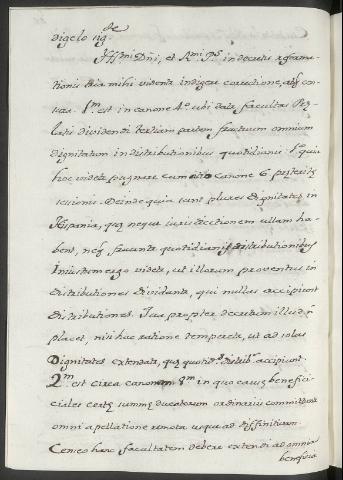 digelo sig.de
Ill.mi Dni, et R.mi P.s in decretis reforma-
tionis tria mihi videntur indigere correctione, aut cen-
sura. P.m est in canone 4.o ubi datur facultas Præ-
latis dividendi tertiam partem fructuum omnium
dignitatum in distributionibus quotidianis. P.o quia
hoc videtur pugnare cum canone 6 præteritæ
sessionis. Deinde quia sunt plures Dignitates in
Hispania, quæ neque iurisdictionem ullam ha-
bent, neque fruuntur quotidianis distributionibus
Iniustum ergo videtur, ut illorum proventus in
distributiones dividantur, qui nullas accipiunt
distributiones. Qua propter decretum illud n.
placet, nisi hac ratione temperetur, ut ad solas
Dignitates extendatur, quæ quotid.s distrib.s accipiunt.
2.m est circa canonem in quo causæ benefici-
ciales certæ summæ ducatorum ordinariis committuntur
omni appellatione remota usque ad diffinitivam
Censeo hanc facultatem debere extendi ad omnia
beneficia